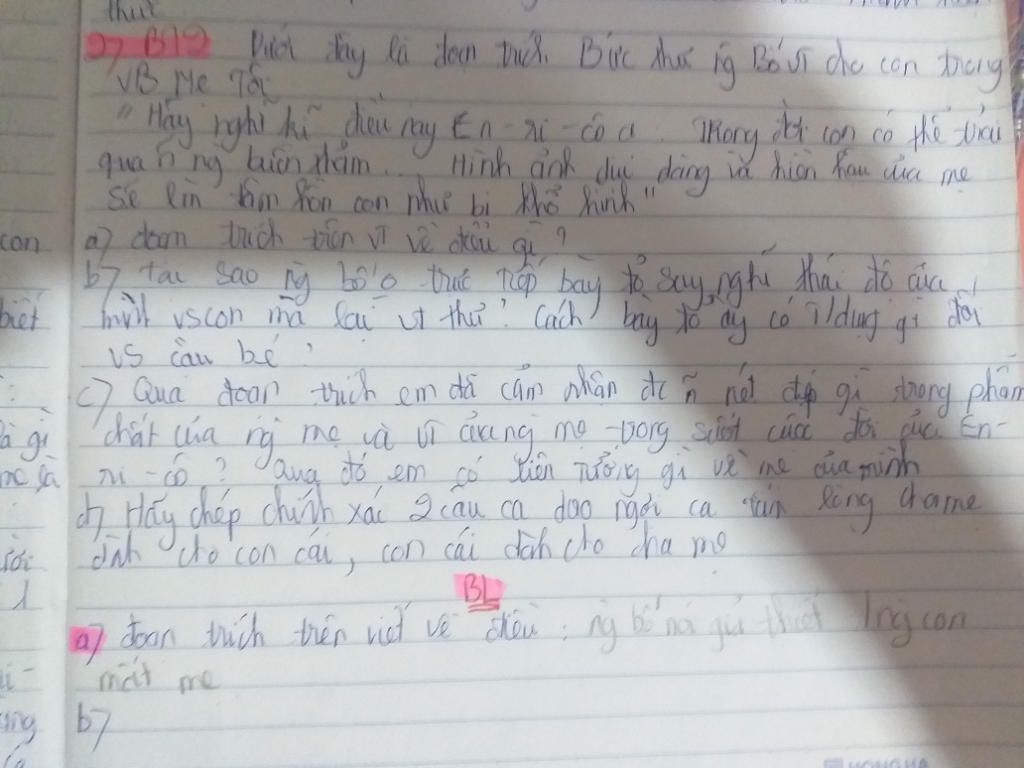 thức
2) BT2 Dưới đây là đoạn trích. Bức thư ng Bố vì cho con trong
VB Mẹ Tôi
"Hãy nghĩ kĩ điều này En-ri-cô ạ. Trong đời con có thể trải
qua ~ ng buồn thảm... Hình ảnh dịu dàng và hiền hậu của mẹ
sẽ làm tâm hồn con như bị khổ hình"
con a) đoạn trích trên vì về điều gì?
b) tại sao ng bố o trực tiếp bày tỏ suy nghĩ thái độ của
biết mình vs con mà lại vì thư? Cách bày tỏ ấy có t/dụng gì đối
vs cậu bé?
c) Qua đoạn trích em đã cảm nhận đc ~ nét đẹp gì trong phẩm
à gì chất của ng mẹ và vì của ng mẹ trong suốt cuộc đời của En-
mẹ là ri-cô? Qua đó em có liên tưởng gì về mẹ của mình
d) Hãy chép chính xác 2 câu ca dao ngợi ca tấm lòng cha mẹ
dành cho con cái, con cái dành cho cha mẹ
BL
a) đoạn trích trên viết về điều: ng bố nói giả thiết 1 ng con
mất mẹ
b)
HONG HA